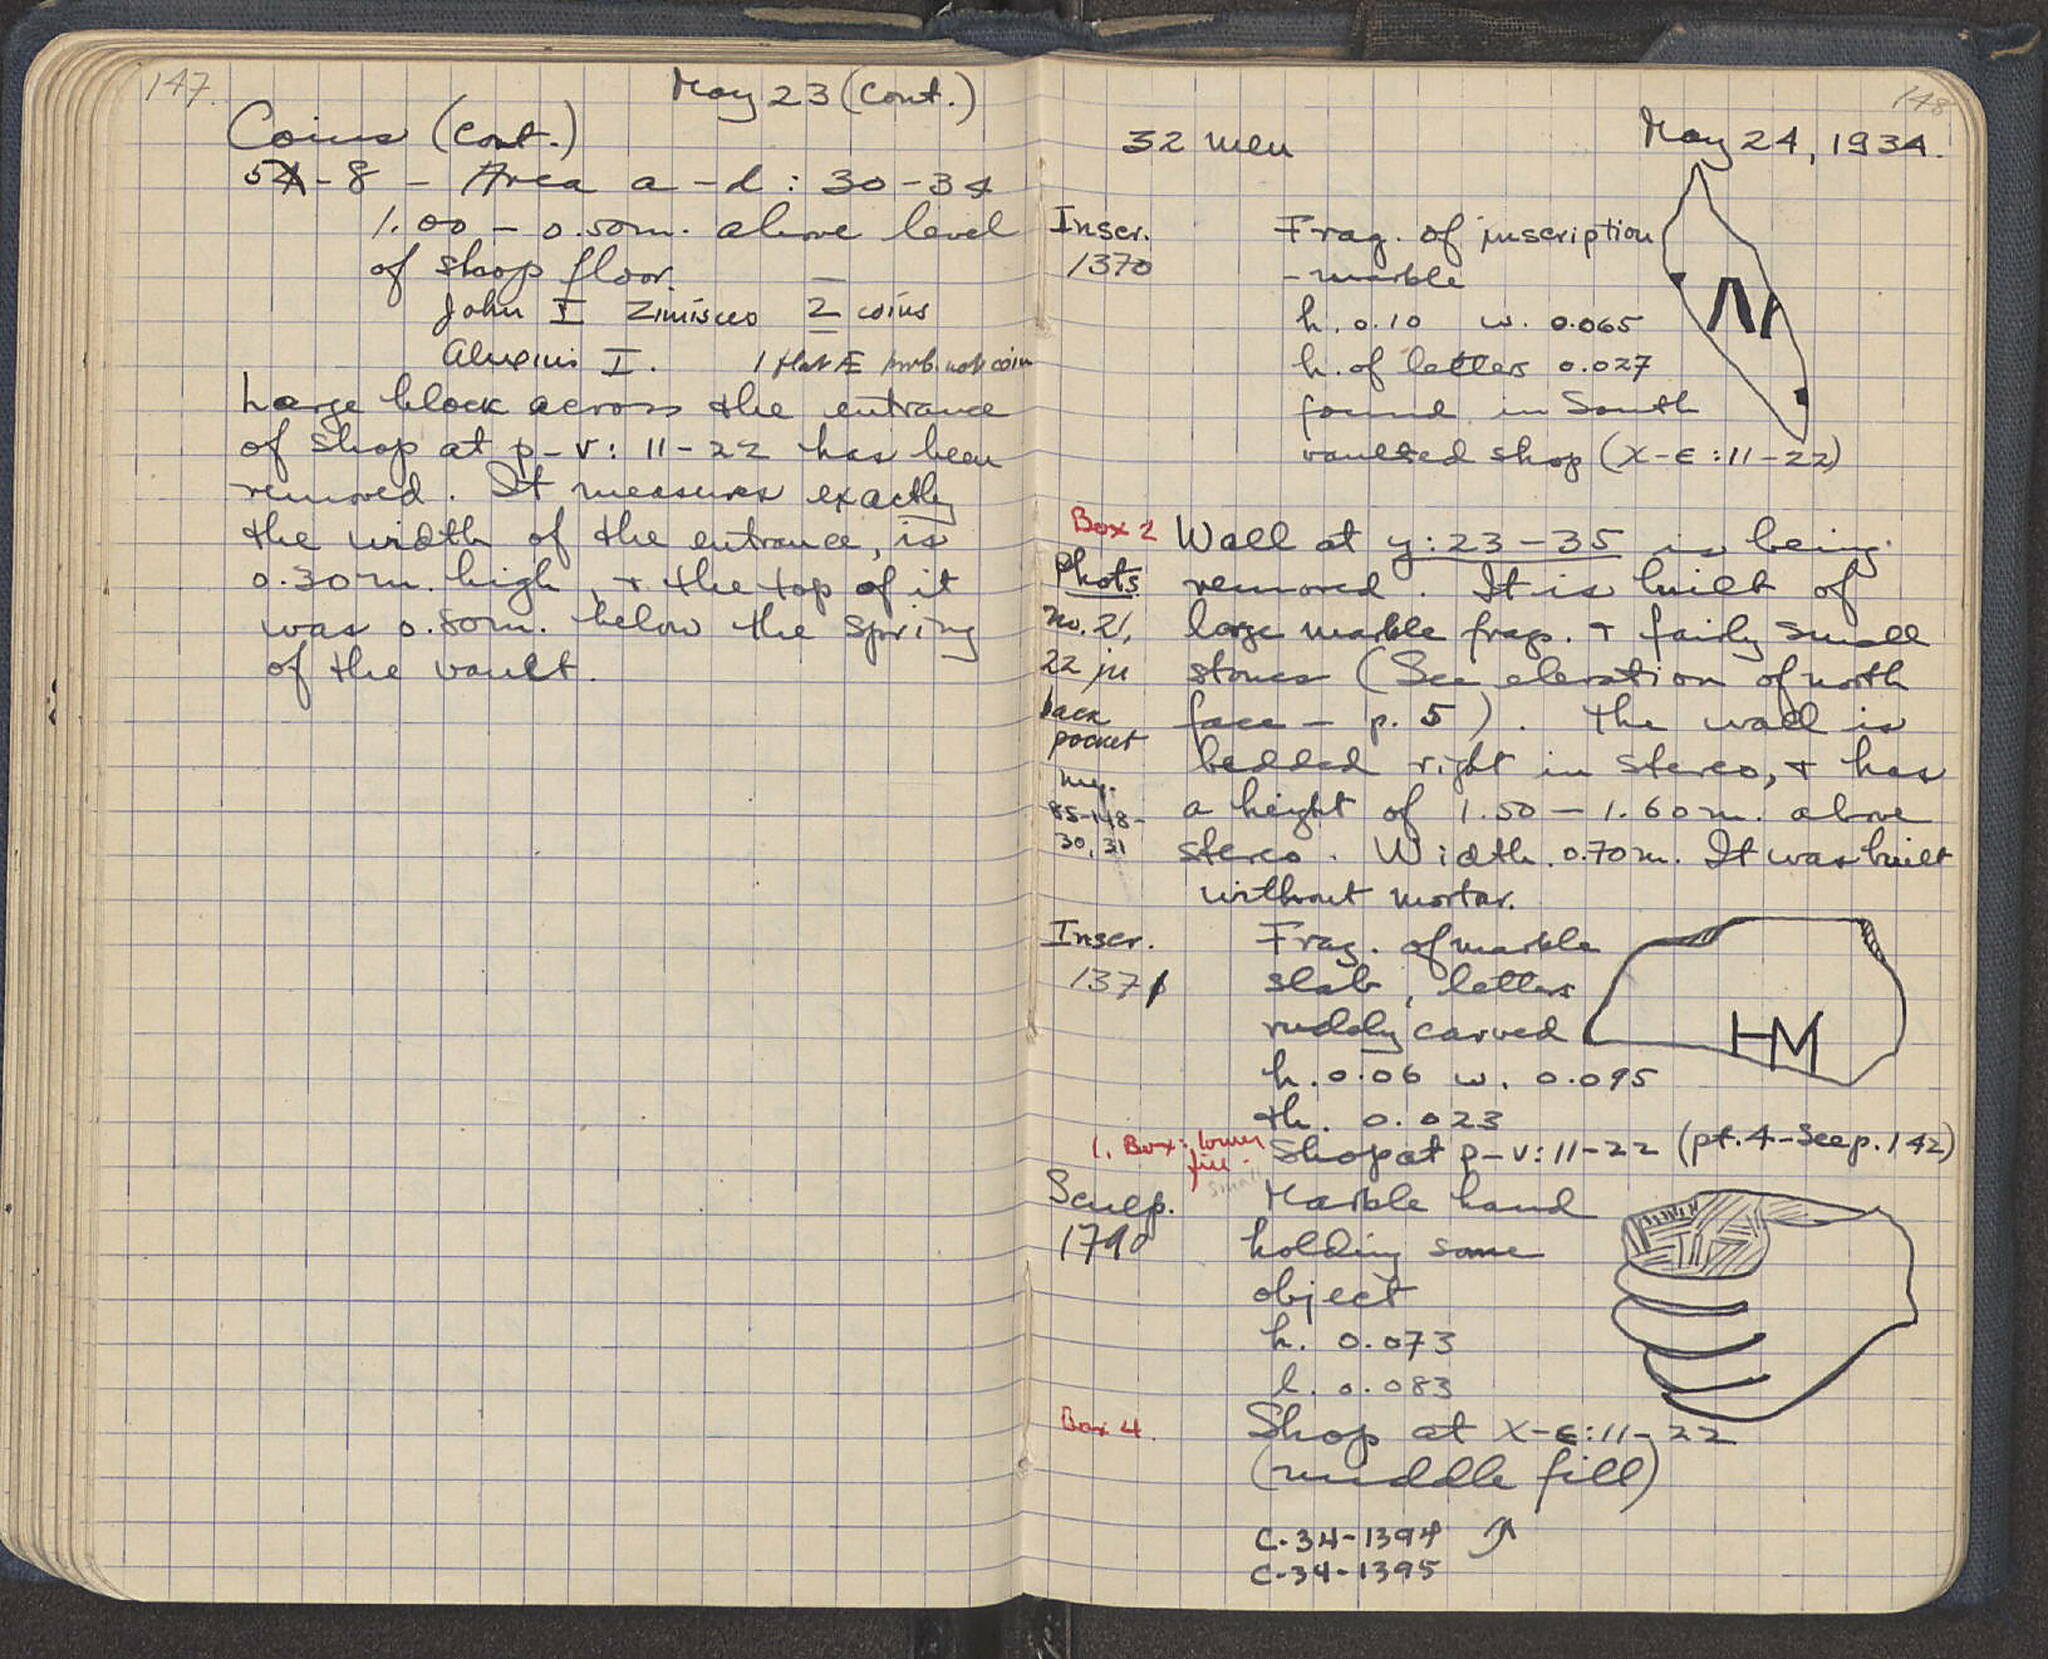 147.
May 23 (Cont.)
Coins (Cont.)
5-8 - Area a-d: 30-34
1.00 - 0.50m. above level
of shop floor.
John I Zimisces 2 coins
Alexius I. 1 flat Æ prob. not coin
Large block across the entrance
of shop at p-v: 11-22 has been
removed. It measures exactly
the width of the entrance, is
0.30m. high, + the top of it
was 0.80m. below the spring
of the vault.
148
32 men May 24, 1934.
Inscr. 1370
Frag. of inscription
- marble
h. 0.10 w. 0.065
h. of letters 0.027
found in South
vaulted shop (X-E:11-22)
Box 2 Wall at y:23-35 is being
removed. It is built of
large marble frags. + fairly small
stones (See elevation of north
face - p. 5). The wall is
bedded right in stereo, + has
a height of 1.50-1.60m. above
stereo. Width 0.70m. It was built
without mortar.
Phots.
no. 21,
22 in
back
pocket
neg.
85-148-
30, 31
Inscr.
1371
Frag. of marble
slab, letters
rudely carved
HM
h. 0.06 w. 0.095
th. 0.023
1. Box: lower
fill.
small
Shop at p-v:11-22 (pt. 4-See p. 142)
Sculp.
1790
Marble hand
holding some
object
h. 0.073
l. 0.083
Box 4. Shop at X-E:11-22
(middle fill)
C.34-1394
C-34-1395